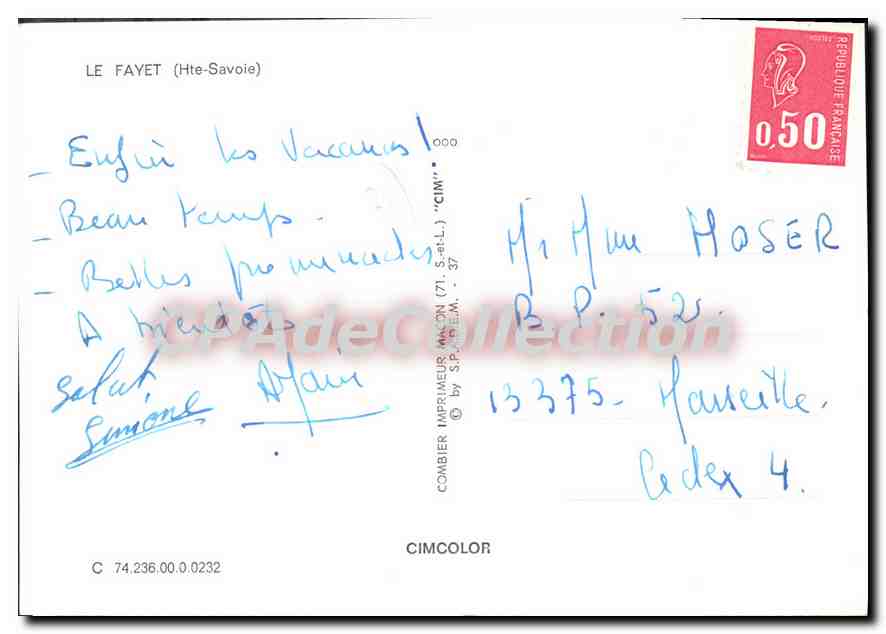 LE FAYET (Hte-Savoie)
_ Enfin les vacances !
_ Beau temps.
_ Belles promenades
A bientôt
Salut,
Simone
Alain
COMBIER IMPRIMEUR MACON (71. S.-et-L.) "CIM"
© by S.P.A.D.E.M. - 37
000
RÉPUBLIQUE FRANÇAISE
POSTES
0,50
Mr Mme MOSER
B P. 52.
13375 - Marseille.
Cedex 4.
CIMCOLOR
C 74.236.00.0.0232
CPAdeCollection